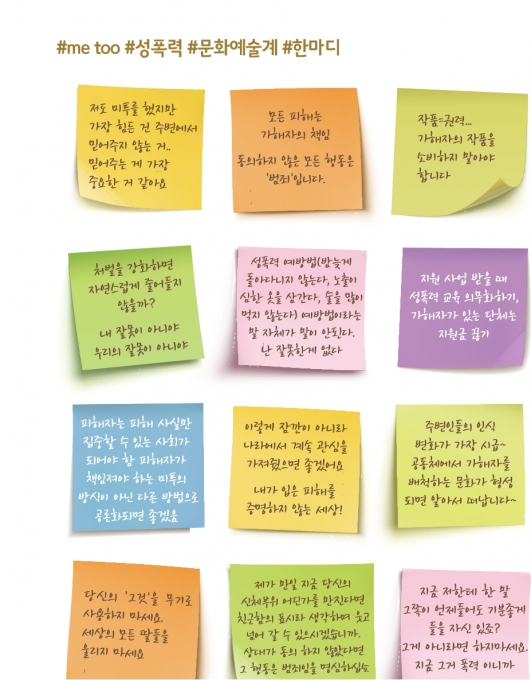 #me too #성폭력 #문화예술계 #한마디
저도 미투를 했지만
가장 힘든 건 주변에서
믿어주지 않는 거..
믿어주는 게 가장
중요한 거 같아요
모든 피해는
가해자의 책임
동의하지 않은 모든 행동은
'범죄'입니다.
작품=권력...
가해자의 작품을
소비하지 말아야
합니다
처벌을 강화하면
자연스럽게 줄어들지
않을까?
내 잘못이 아니야
우리의 잘못이 아니야
성폭력 예방법(밤늦게
돌아다니지 않는다, 노출이
심한 옷을 삼간다, 술을 많이
먹지 않는다) 예방법이라는
말 자체가 말이 안된다.
난 잘못한게 없다
지원 사업 받을 때
성폭력 교육 의무화하기,
가해자가 있는 단체는
지원금 끊기
피해자는 피해 사실만
집중할 수 있는 사회가
되어야 함 피해자가
책임져야 하는 미투의
방식이 아닌 다른 방법으로
공론화되면 좋겠음
이렇게 잠깐이 아니라
나라에서 계속 관심을
가져줬으면 좋겠어요
내가 입은 피해를
증명하지 않는 세상!
주변인들의 인식
변화가 가장 시급~
공동체에서 가해자를
배척하는 문화가 형성
되면 알아서 떠납니다~
당신의 '그것'을 무기로
사용하지 마세요.
세상의 모든 딸들을
울리지 마세요
제가 만일 지금 당신의
신체부위 어딘가를 만진다면
친근함의 표시라 생각하며 웃고
넘어 갈 수 있으시겠습니까.
상대가 동의 하지 않았다면
그 행동은 범죄임을 명심하십소
지금 저한테 한 말
그쪽이 언제들어도 기분좋게
들을 자신 있죠?
그게 아니라면 하지마세요.
지금 그거 폭력 이니까